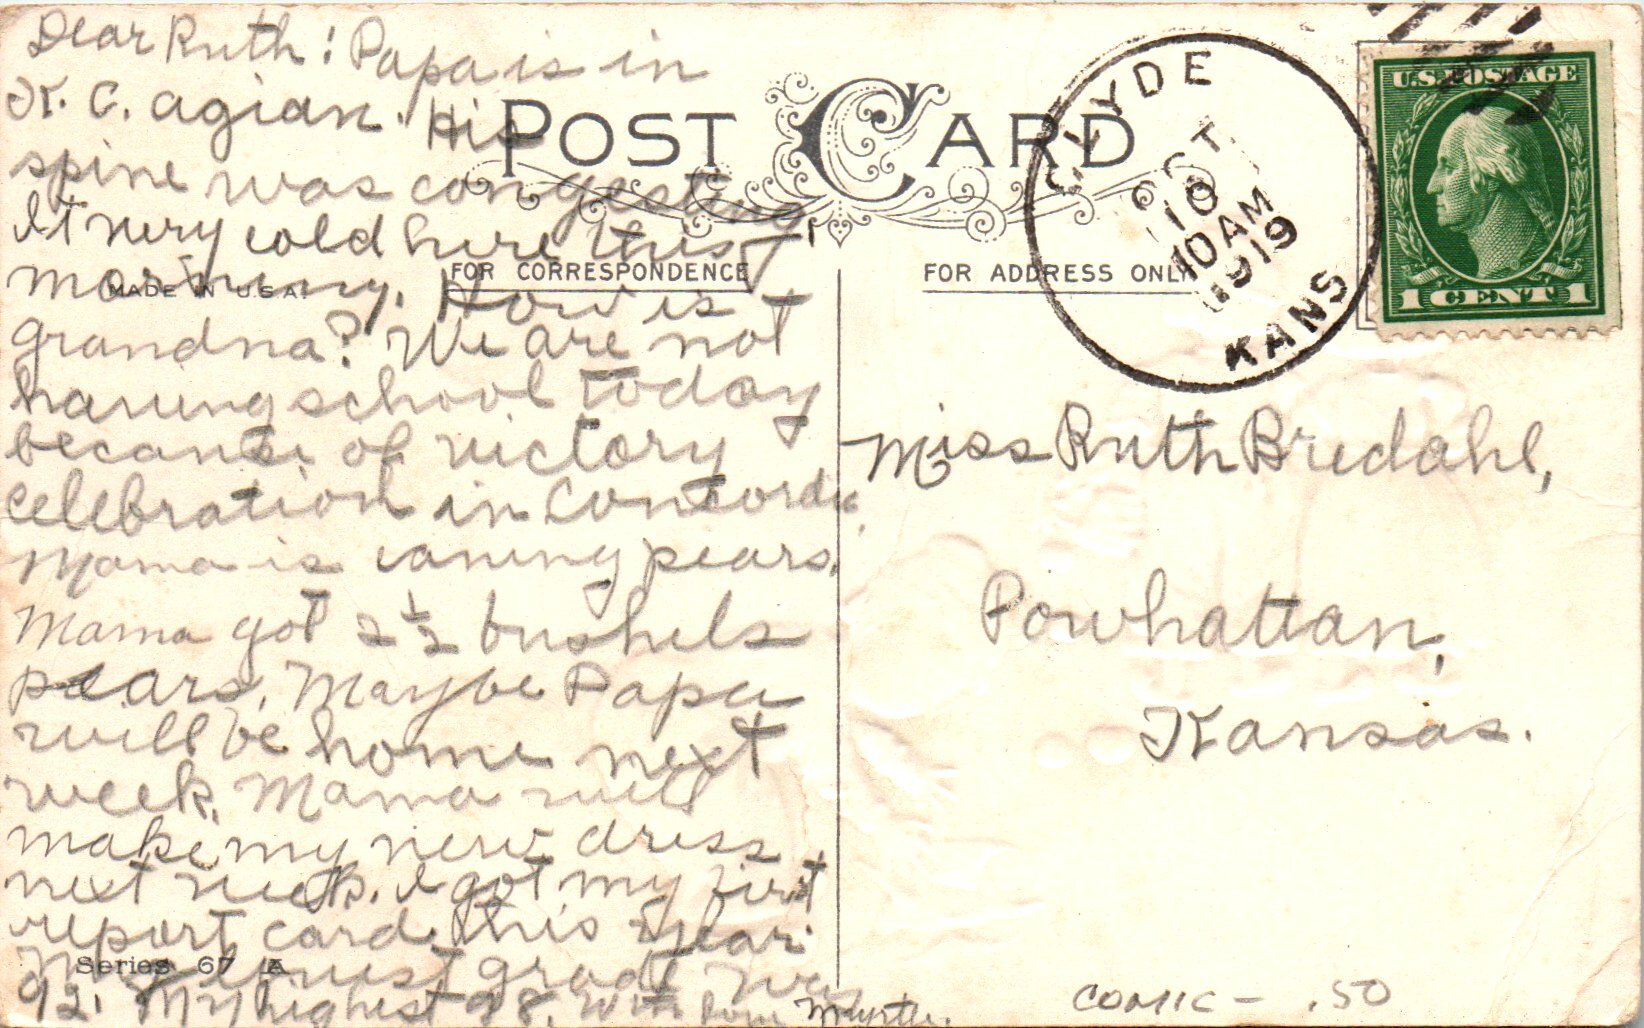 Dear Ruth: Papa is in
K. C. agian. His
spine was congesting
It very cold here this
morning. How is
grandna? We are not
having school today
because of victory
celebration in Concordia.
Mama is caning pears.
Mama got 2 1/2 bushels
pears. Maybe Papa
will be home next
week. Mama will
make my new dress
next week. I got my first
report card this year.
My lowest grade was
92. My highest 98. With love Myrtle.
POST CARD
FOR CORRESPONDENCE
FOR ADDRESS ONLY
MADE IN U.S.A.
Series 67 A
CLYDE
OCT
10
10 AM
1919
KANS
U.S. POSTAGE
1 CENT 1
Miss Ruth Bredahl,
Powhattan,
Kansas.
COMIC - .50